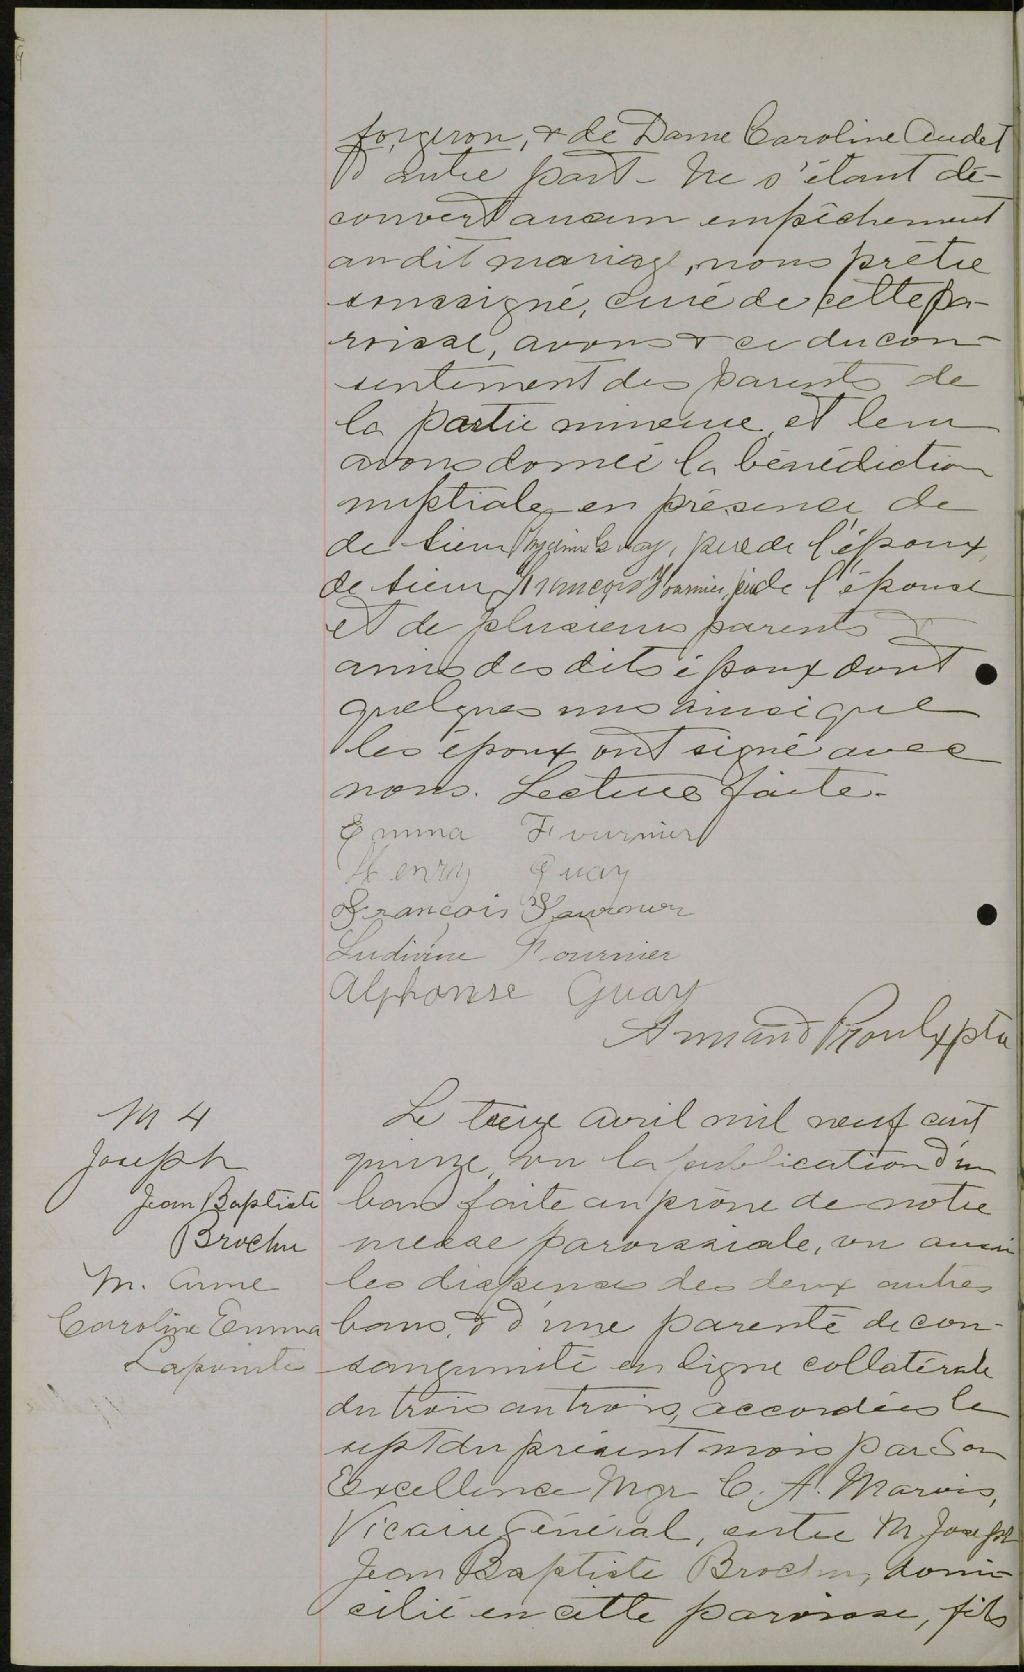 forgeron, & de Dame Caroline Audet
d'autre part - Ne s'étant dé-
couvert aucun empêchement
au dit mariage, nous prêtre
soussigné, curé de cette pa-
roisse, avons & ce du con-
sentement des parents de
la partie mineure, et leur
avons donné la bénédiction
nuptiale en présence de
de sieur Guay, père de l'époux,
de sieur François Fournier, père de l'épouse
et de plusieurs parents &
amis des dits époux dont
quelques uns ainsi que
les époux ont signé avec
nous. Lecture faite.
Emma Fournier
Henry Guay
François Fournier
Ludivine Fournier
Alphonse Guay
Armand Proulx ptre
M 4
Joseph
Jean Baptiste
Brochu
M. Anne
Caroline Emma
Lapointe
Le treize avril mil neuf cent
quinze, vu la publication d'un
ban faite au prône de notre
messe paroissiale, vu aussi
les dispenses des deux autres
bans, & d'une parenté de con-
sanguinité en ligne collatérale
du trois au trois, accordées le
sept du présent mois par Son
Excellence Mgr C. A. Marois,
Vicaire Général, entre M Joseph
Jean Baptiste Brochu, domi-
cilié en cette paroisse, fils